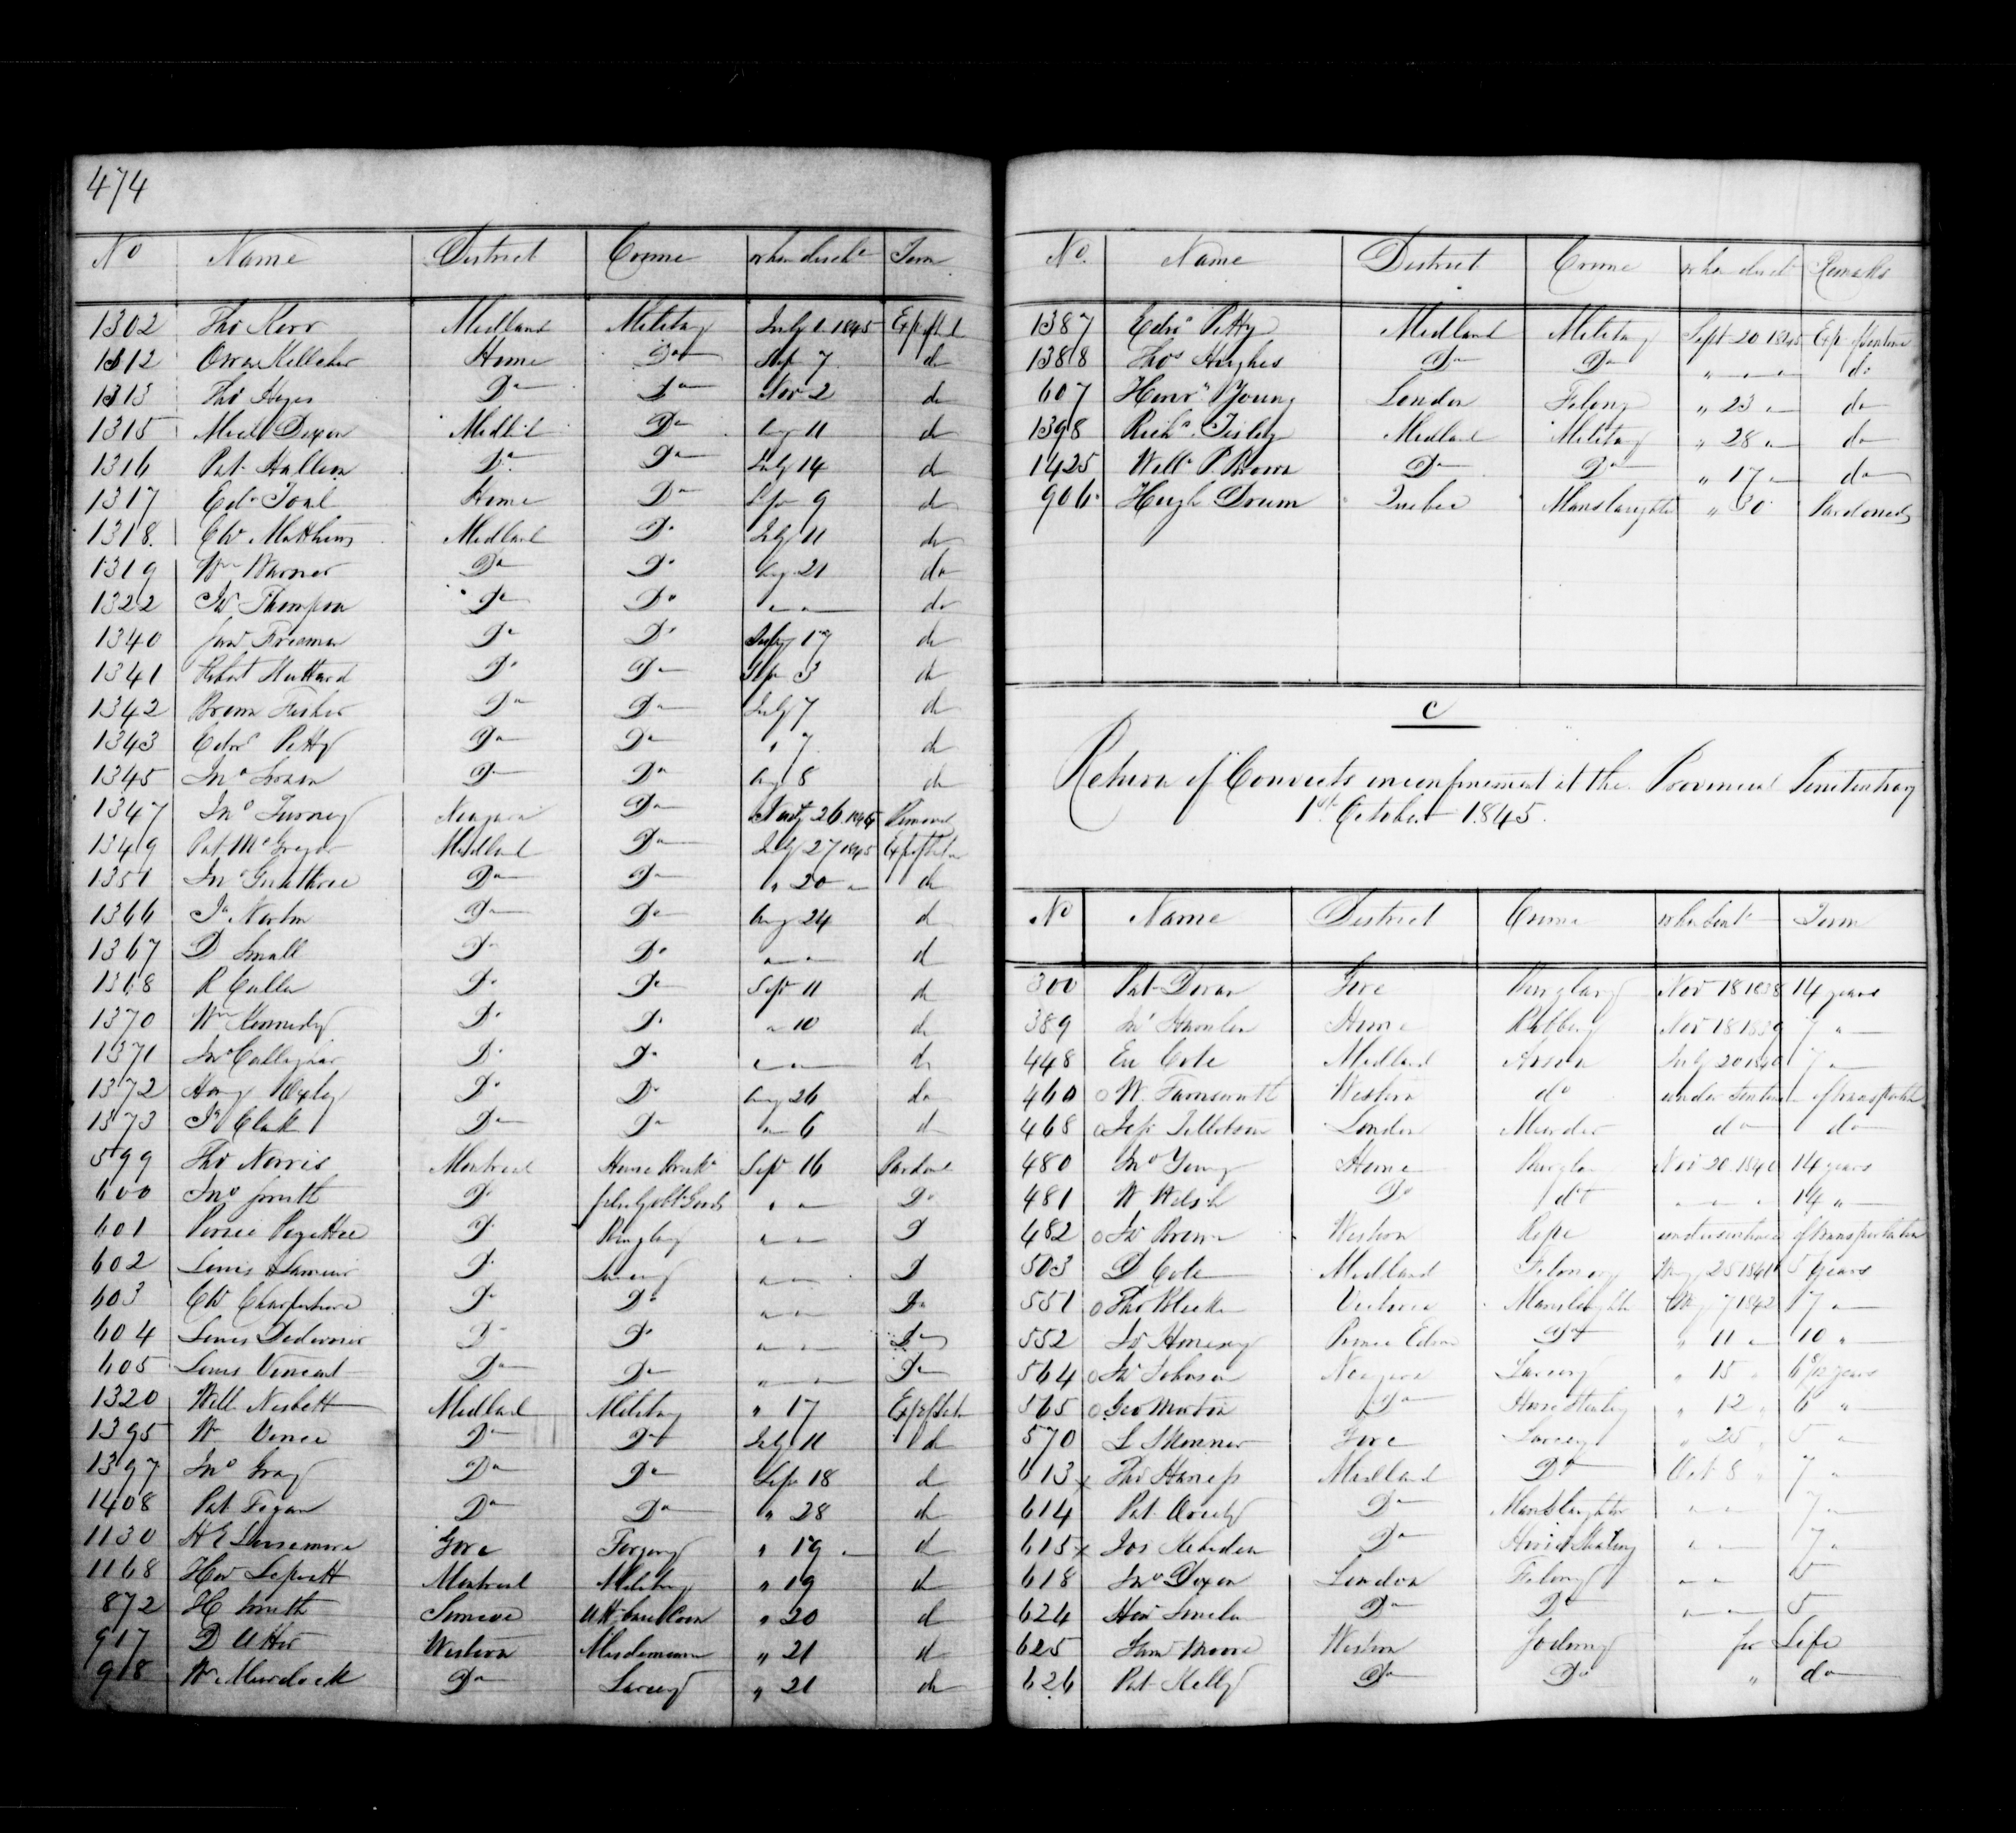 474
No Name District Crime when disch Term
1302 Tho Kerr Midland Military July 1 1845 Exp of St
1312 Owen Kelleher Home Do Sep 7 do
1313 Tho Hayes Do Do Nov 2 do
1315 Mich Dixon Midld Do Aug 11 do
1316 Pat Hallern Do Do July 14 do
1317 Edw Toal Home Do Sep 9 do
1318 Chs Mathews Midland Do July 11 do
1319 Wm Warner Do Do Aug 21 do
1322 Jas Thompson Do Do " " do
1340 Jas Freeman Do Do July 17 do
1341 Robert Do Do Sep 3 do
1342 Fisher Do Do July 7 do
1343 Edwd Petty Do Do " 7 do
1345 Jno Do Do Aug 8 do
1347 Jno Turney Niagara Do 26 1845
1349 Pat McGregor Midland Do July 27 1845 Exp of
1351 Jno Do Do " 20 " do
1366 Js Norton Do Do Aug 24 do
1367 D Small Do Do " " do
1368 R Cullen Do Do Sept 11 do
1370 Wm Kennedy Do Do " 10 do
1371 Jno Callaghan Do Do " " do
1372 Do Do Aug 26 do
1373 Js Clark Do Do " 6 do
599 Tho Norris Montreal House Break Sep 16 Pardond
600 Jno Smith Do Goods " " Do
601 Do Burglary " " D
602 Louis Lamour Do Larceny " " D
603 Chs Do Do " " Do
604 Louis Do Do " " Do
605 Louis Vincent Do Do " " Do
1320 Will Nesbett Midland Military " 17 Exp of
1395 Wm Vence Do Do July 11 do
1397 Jno Gray Do Do Sep 18 do
1408 Pat Fegan Do Do " 28 do
1130 H E Gore Forgery " 19 " do
1168 Montreal Military " 19 do
872 H Smith Simcoe " 20 do
917 D Utter Western Misdemeanor " 21 do
918 Wm Murdock Do Larceny " 21 do
No. Name District Crime when disd Remarks
1387 Edwd Petty Midland Military Sept 20 1845 Exp of Sentence
1388 Thos Hughes Do Do " " " do
607 Henry Young London Felony " 23 " do
1398 Richd Tisley Midland Military " 28 " do
1425 Willm P Brown Do Do " 17 " do
906 Hugh Drum Quebec Manslaughter " 30 Pardoned
C
Return of Convicts in confinement at the Provincial Penitentiary
1st October 1845.
No Name District Crime when Sent Term
300 Pat Doran Gore Burglary Nov 18 1838 14 years
389 Jno Home Robbery Nov 18 1839 7 "
448 Cole Midland Arson July 20 1840 7 "
460 o W. Farnsworth Western do under Sentence of transportation
468 o Tillotson London Murder do do
480 Jno Young Home Burglary Nov 20 1840 14 years
481 W Welsh Do do " " " 14 "
482 o Js Brown Western Rape under sentence of transportation
503 D Cole Midland Felony 25 1841 5 years
551 o Tho Victoria Manslaughter May 7 1842 7 "
552 Prince Edwd Do " 11 " 10 "
564 o Js Johnson Niagara Larceny " 15 " years
565 o Geo Morton Do Horse Stealing " 12 " 6 "
570 L Skinner Gore Larceny " 25 " 5 "
613 x Tho Midland Do Oct 8 " 7 "
614 Pat Do Manslaughter " " 7 "
615 x Jos Do Horse Stealing " " 7 "
618 Jno Dixon London Felony " " 5
624 Do Do " " 5
625 Saml Moore Western for Life
626 Pat Kelly Do Do " do